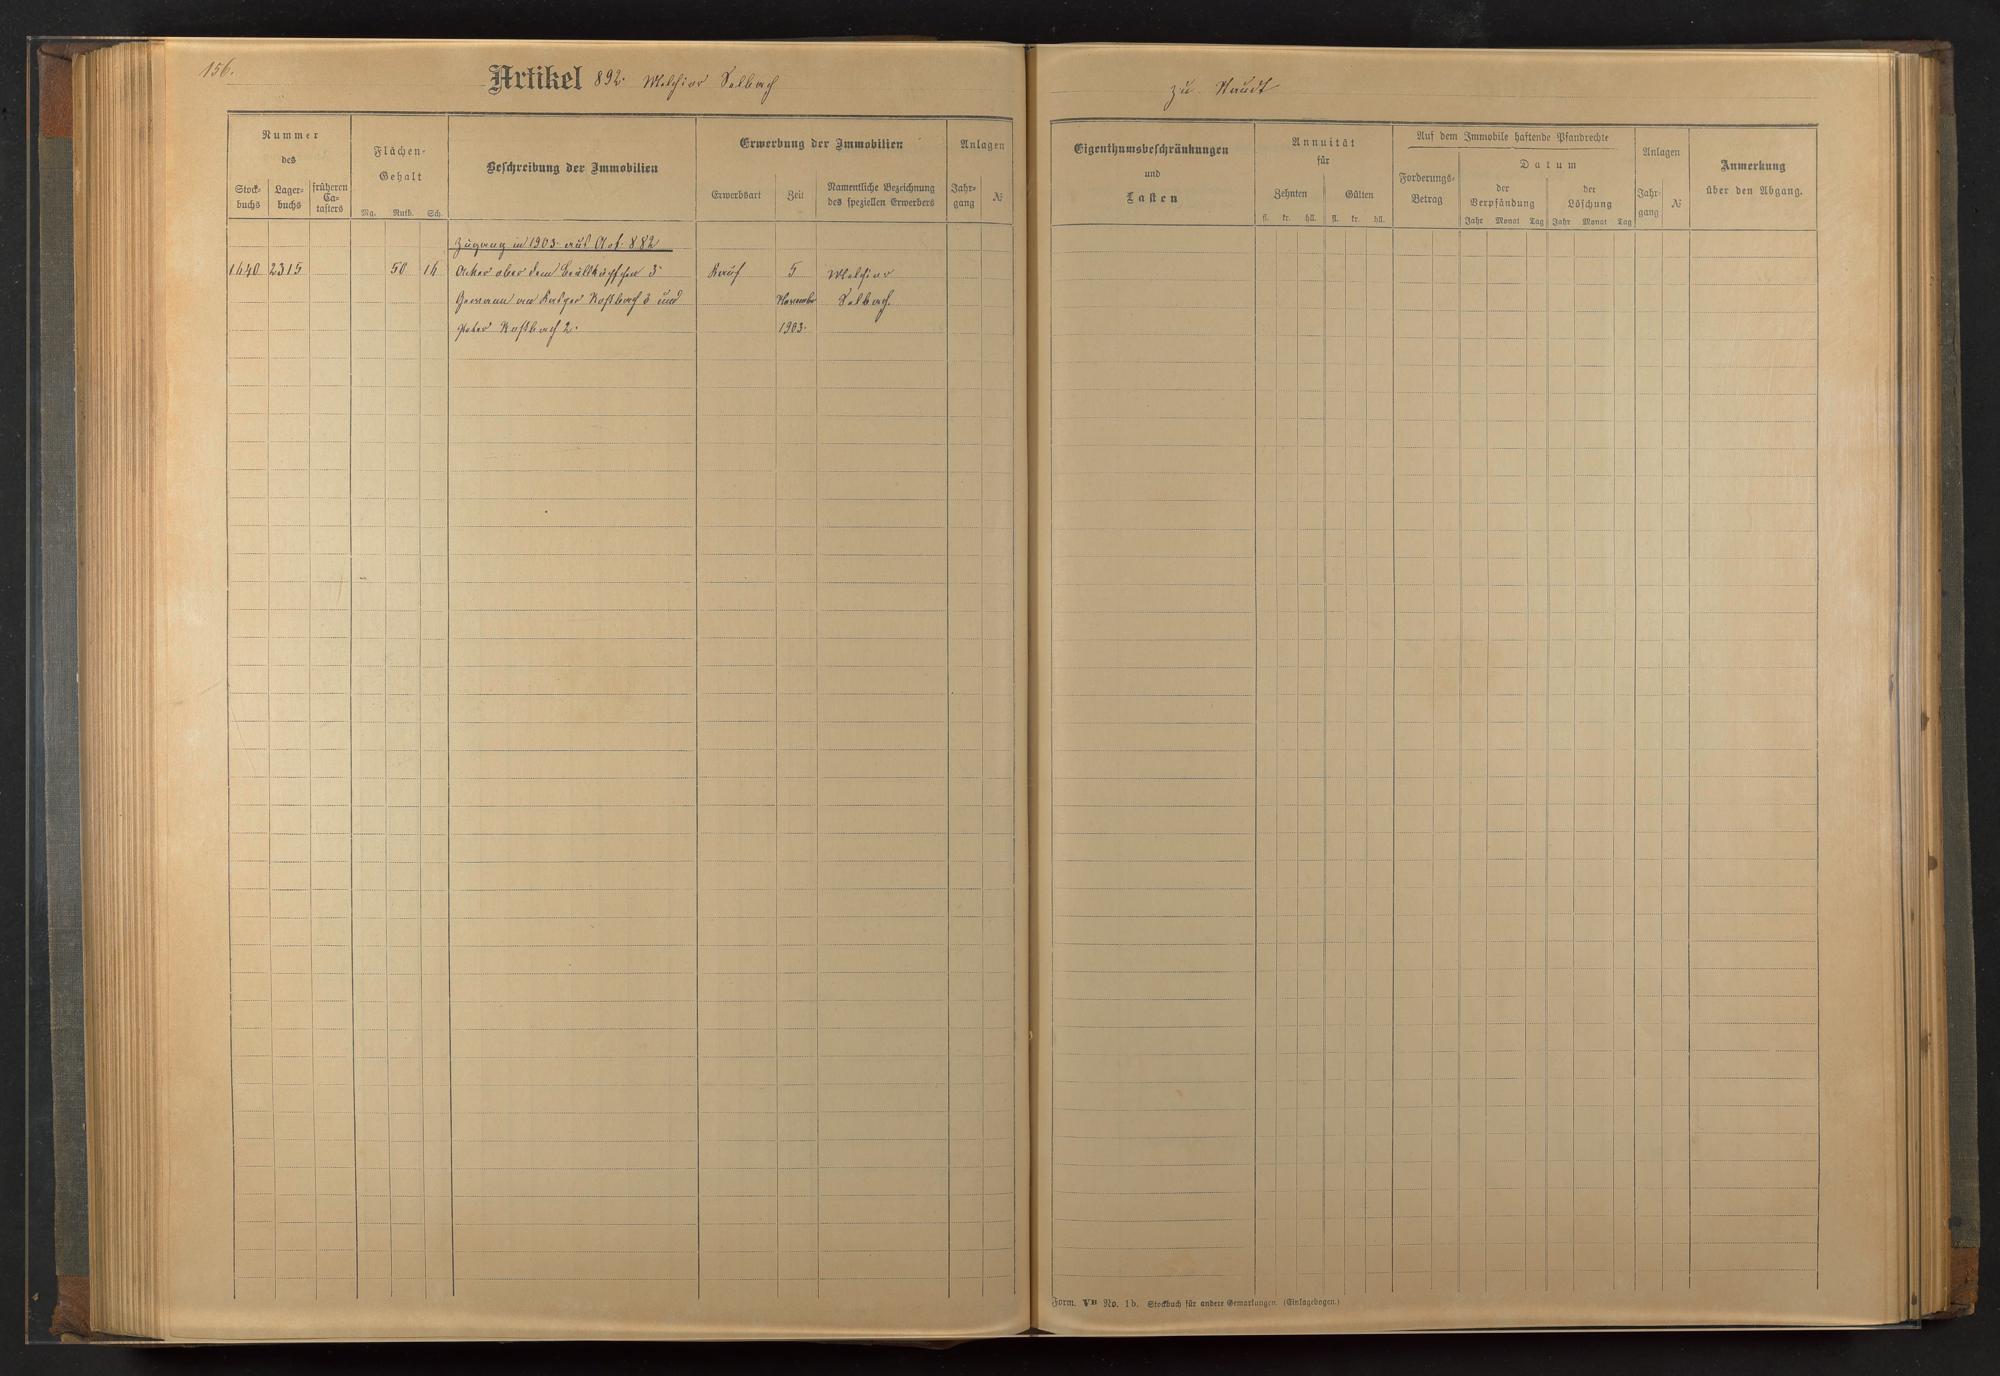 156.
Artikel 892. Melchior Selbach
Nummer
des
Stock-
buchs
Lager-
buchs
früheren
Ca-
tasters
Flächen-
Gehalt
Mg. Ruth. Sch.
Beschreibung der Immobilien
Erwerbung der Immobilien
Erwerbsart
Zeit
Namentliche Bezeichnung
des speziellen Erwerbers
Anlagen
Jahr-
gang
№
Zugang in 1903 aus Art. 882
1640 2315 50 16 Acker ober dem 3 Kauf 5 Melchior
Gewann an Roßbach 3 und November Selbach.
Peter Roßbach 2. 1903.
zu Staudt
Eigenthumsbeschränkungen
und
Lasten
Annuität
für
Zehnten
fl. kr. hll.
Gülten
fl. kr. hll.
Auf dem Immobile haftende Pfandrechte
Forderungs-
Betrag
Datum
der
Verpfändung
Jahr Monat Tag
der
Löschung
Jahr Monat Tag
Anlagen
Jahr-
gang
№
Anmerkung
über den Abgang.
Form. VB No. 1b. Stockbuch für andere Gemarkungen. (Einlagebogen.)